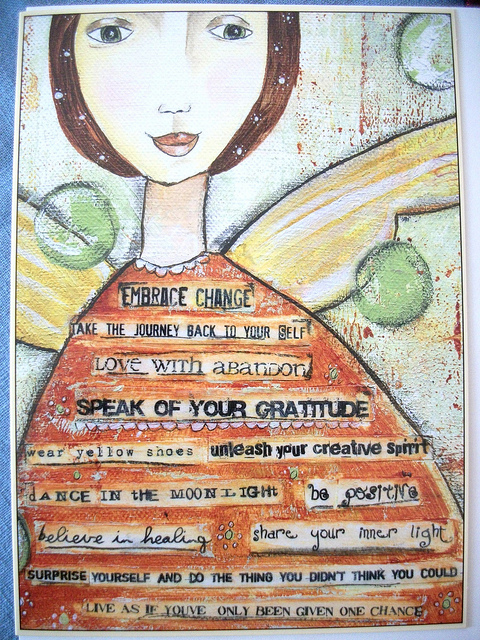 EMBRACE CHANGE
TAKE THE JOURNEY BACK TO YOUR SELF
LOVE WITH ABANDON
SPEAK OF YOUR GRATITUDE
wear yellow shoes unleash your creative spirit
DANCE IN tHE MOONLIGHt be positive
believe in healing share your inner light
SURPRISE YOURSELF AND DO THE THING YOU DIDN'T THINK YOU COULD
LIVE AS IF YOUVE ONLY BEEN GIVEN ONE CHANCE